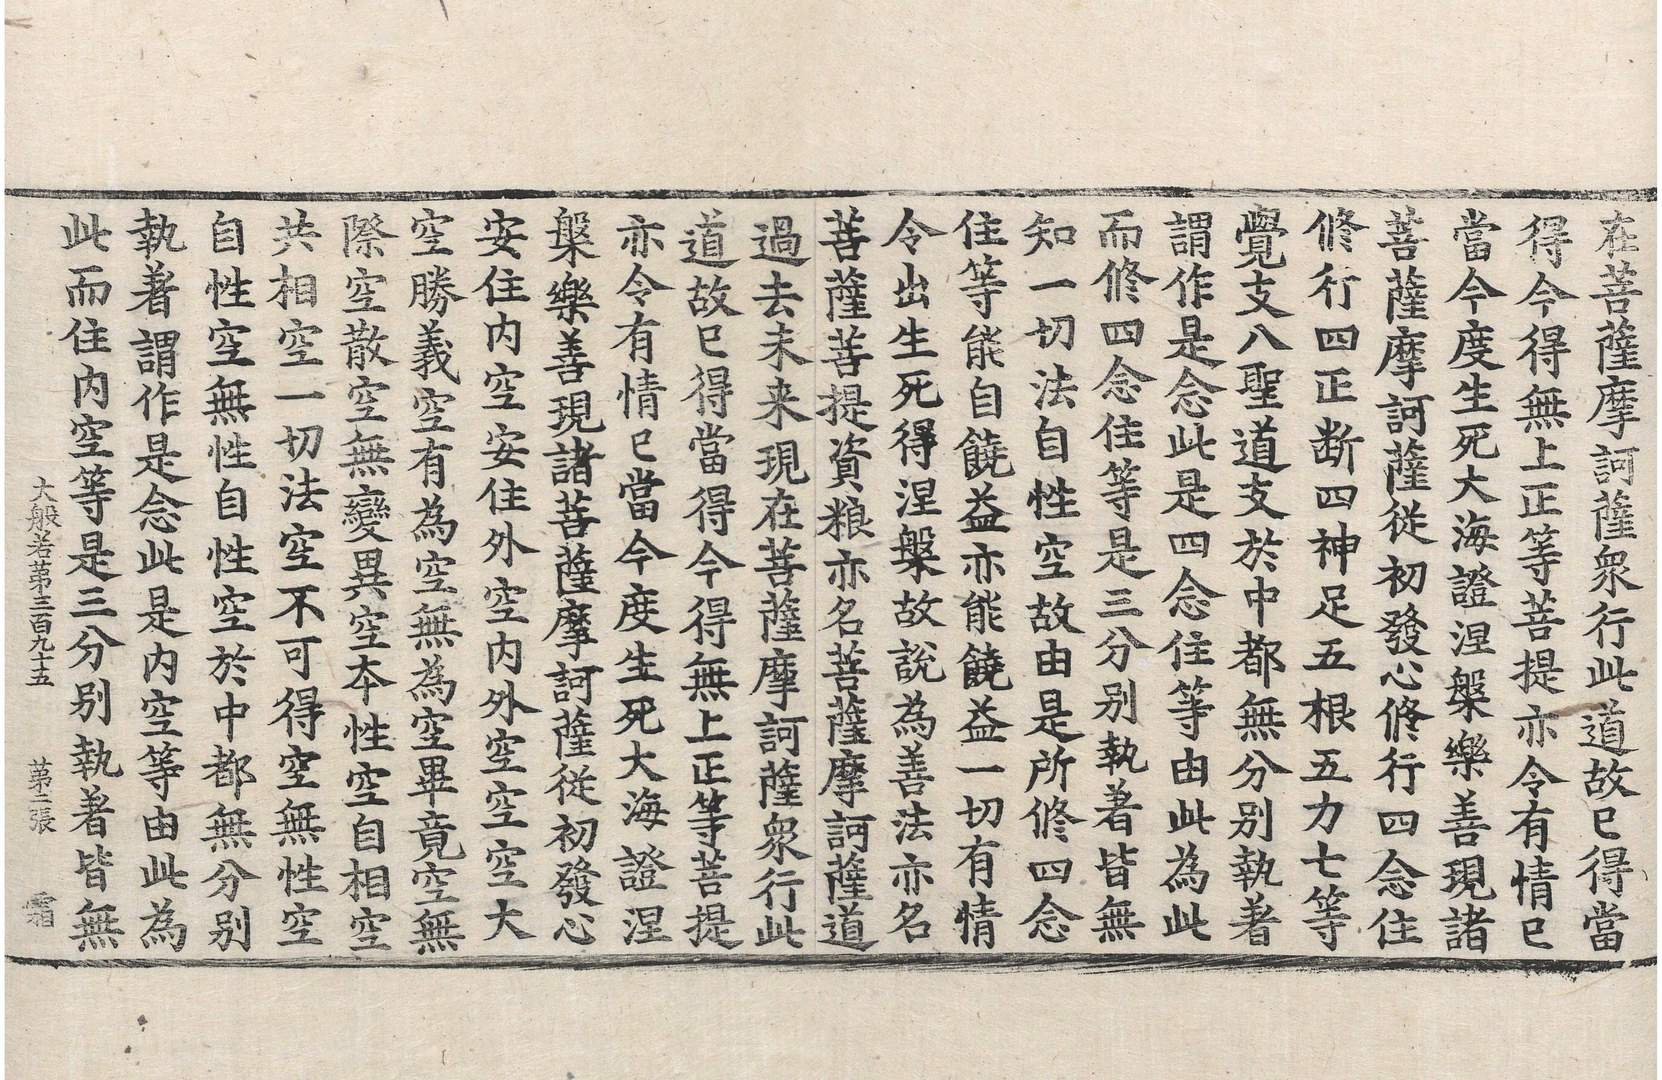 在菩薩摩訶薩衆行此道故已得當
得今得無上正等菩提亦令有情已
當今度生死大海證涅槃樂善現諸
菩薩摩訶薩從初發心修行四念住
修行四正断四神足五根五力七等
覺支八聖道支於中都無分别執著
謂作是念此是四念住等由此為此
而修四念住等是三分别執著皆無
知一切法自性空故由是所修四念
住等能自饒益亦能饒益一切有情
令出生死得涅槃故說為善法亦名
菩薩菩提資粮亦名菩薩摩訶薩道
過去未来現在菩薩摩訶薩衆行此
道故已得當得今得無上正等菩提
亦令有情已當今度生死大海證涅
槃樂善現諸菩薩摩訶薩從初發心
安住内空安住外空内外空空空大
空勝義空有為空無為空畢竟空無
際空散空無變異空本性空自相空
共相空一切法空不可得空無性空
自性空無性自性空於中都無分别
執著謂作是念此是内空等由此為
此而住内空等是三分别執著皆無
大般若苐三百九十五 苐二張 霜